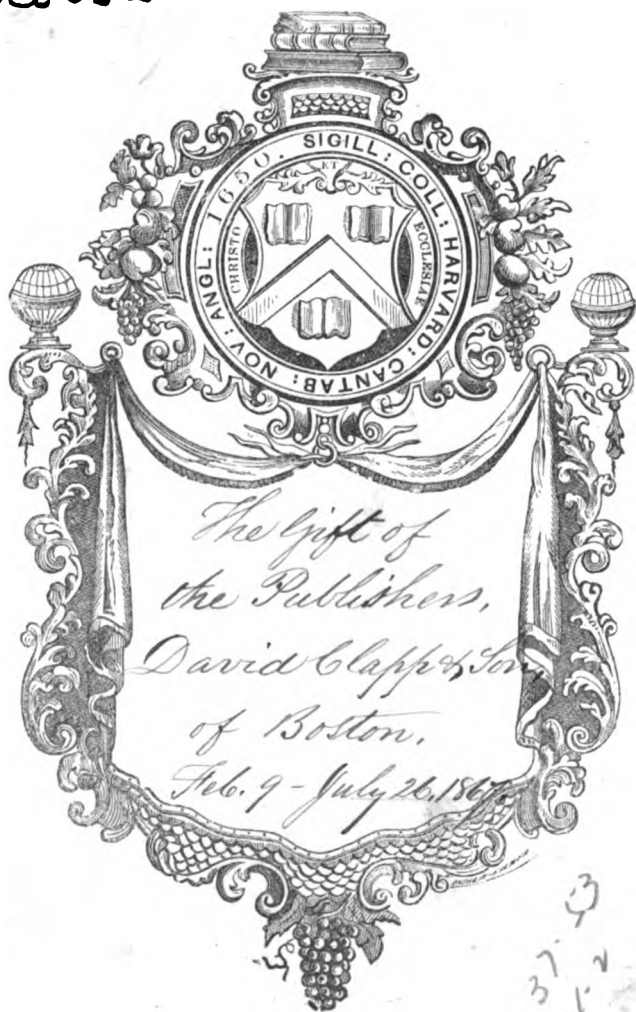 SIGILL: COLL: HARVARD: CANTAB: NOV: ANGL: 1650.
ET
CHRISTO
ECCLESIAE
The Gift of
the Publishers,
David Clapp & Son,
of Boston,
Feb. 9 - July 26, 1867.